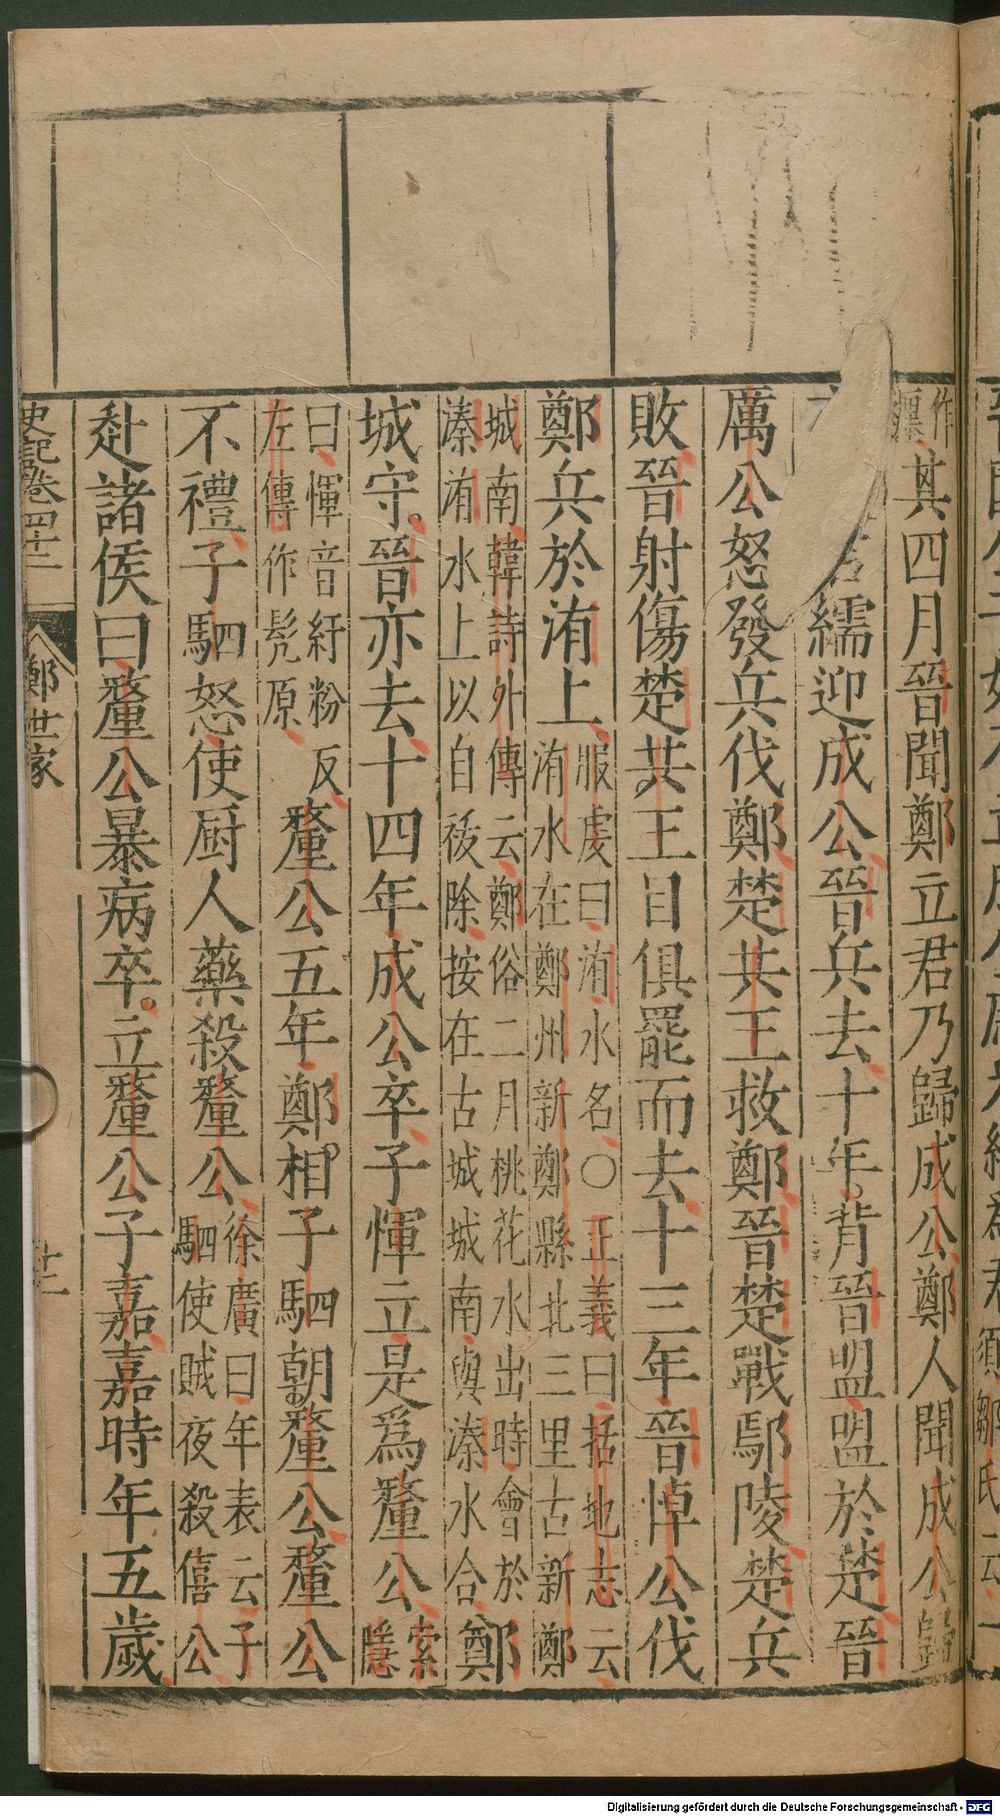 作纒其四月晉聞鄭立君乃歸成公鄭人聞成公歸
繻迎成公晉兵去十年背晉盟盟於楚晉
厲公怒發兵伐鄭楚共王救鄭晉楚戰鄢陵楚兵
敗晉射傷楚共王目俱罷而去十三年晉悼公伐
鄭兵於洧上服虔曰洧水名○正義曰括地志云洧水在鄭州新鄭縣北三里古新鄭
城南韓詩外傳云鄭俗二月桃花水出時會於溱洧水上以自祓除按在古城城南與溱水合鄭
城守晉亦去十四年成公卒子惲立是爲釐公索隱
曰惲音紆粉反左傳作髡原釐公五年鄭相子駟朝釐公釐公
不禮子駟怒使厨人藥殺釐公徐廣曰年表云子駟使賊夜殺僖公
赴諸侯曰釐公暴病卒立釐公子嘉嘉時年五歲
史記卷四十二
鄭世家
十二
Digitalisierung gefördert durch die Deutsche Forschungsgemeinschaft - DFG